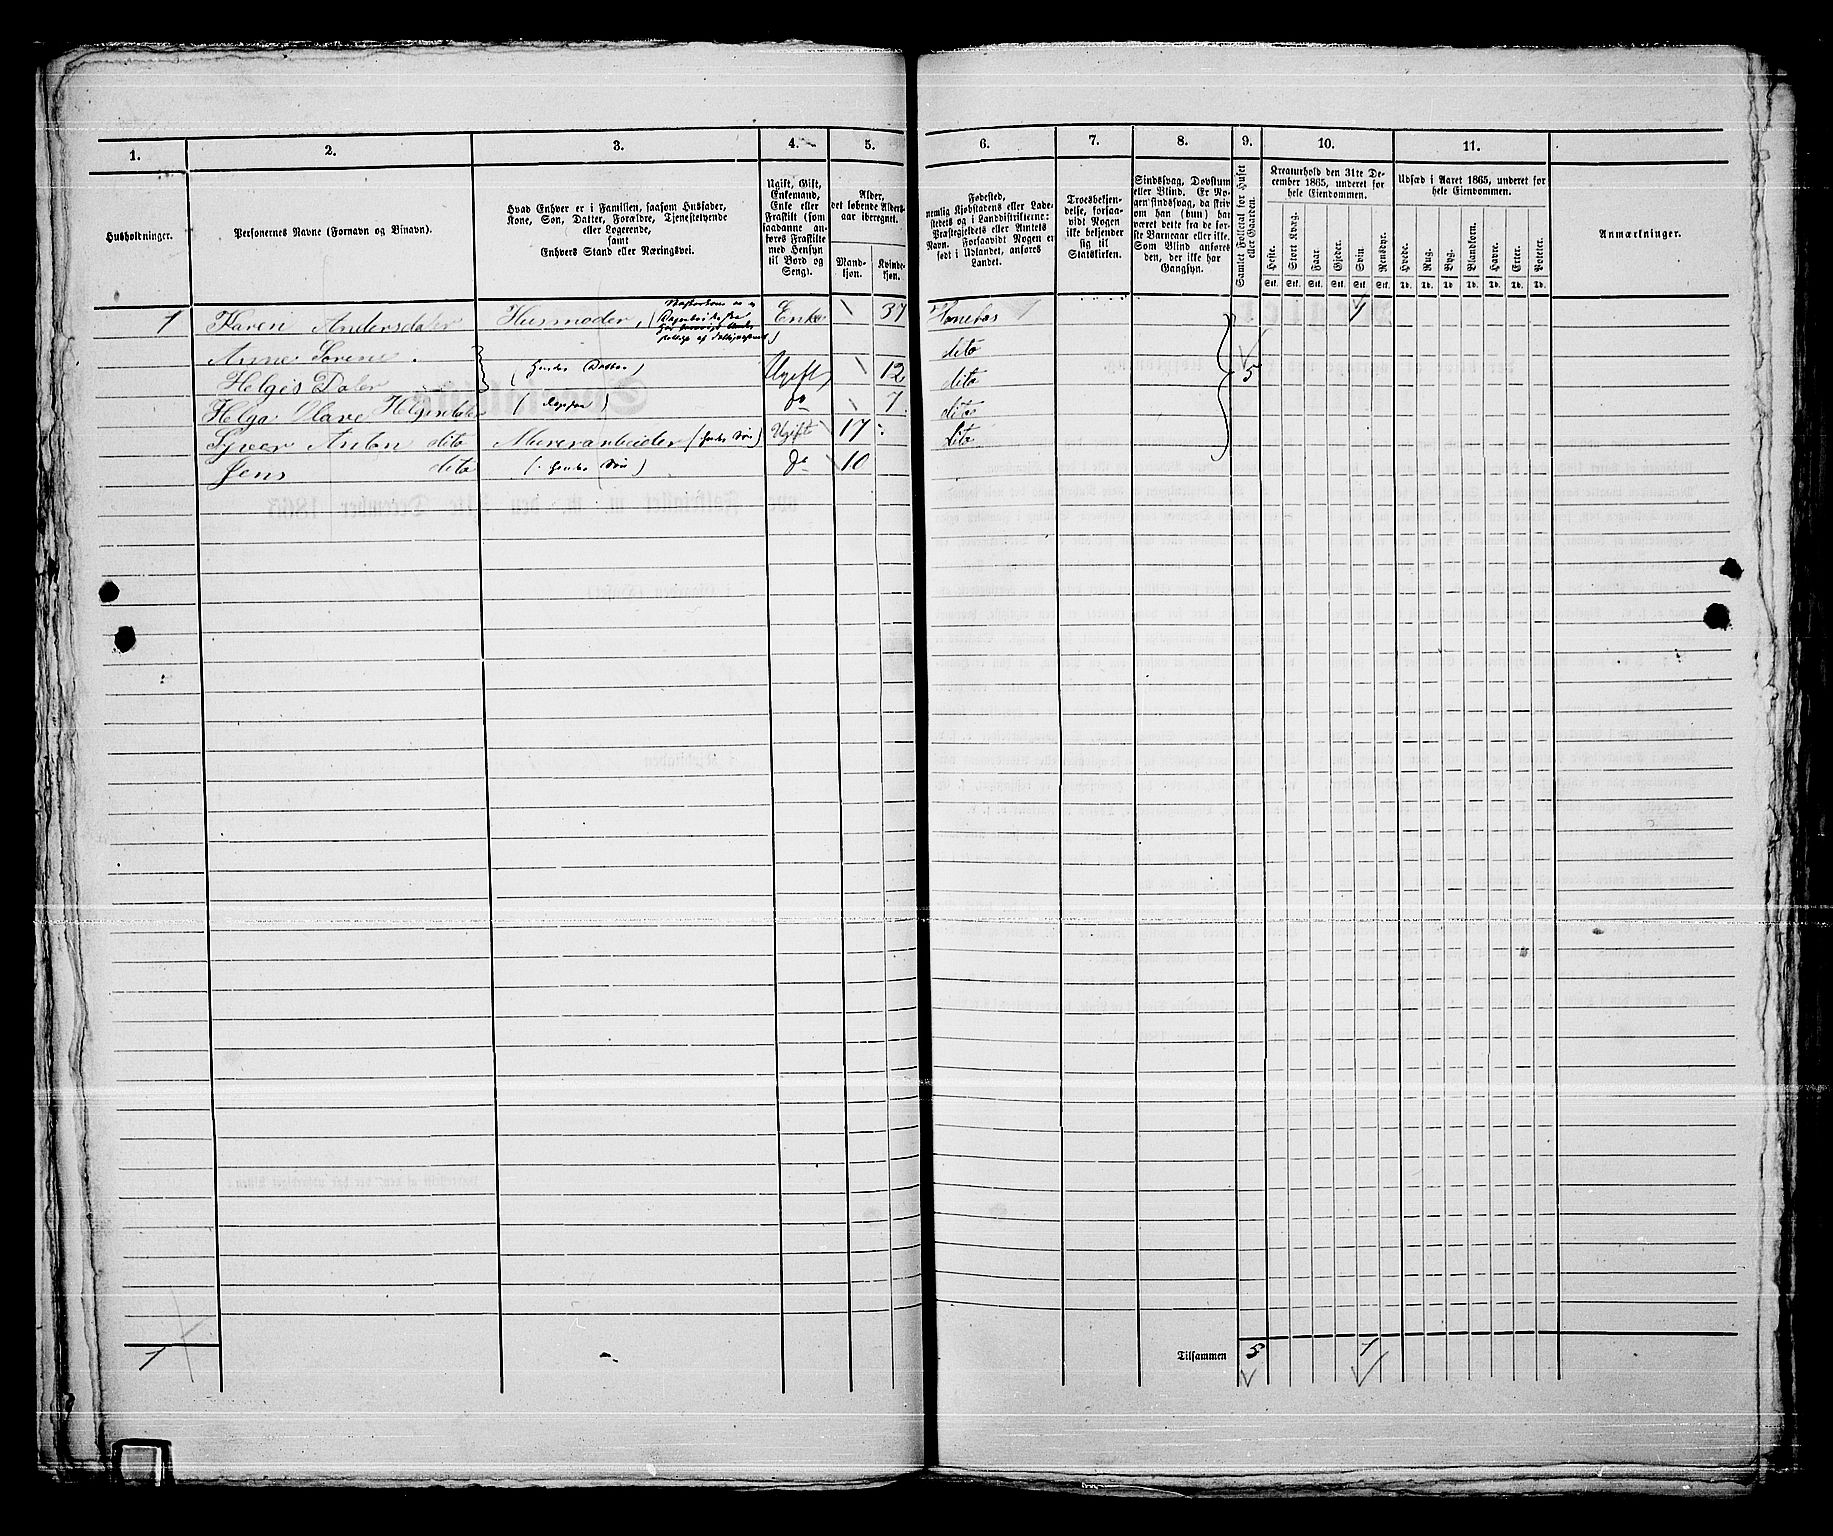 1.
2.
3.
4.
5.
6.
7.
8.
9.
10.
11.
Husholdninger.
Personernes Navne (Fornavn og Binavn).
Hvad Enhver er i Familien, saasom Husfader,
Kone, Søn, Datter, Forældre, Tjenestetyende
eller Logerende,
samt
Enhvers Stand eller Næringsvei.
Ugift, Gift,
Enkemand,
Enke eller
Fraskilt (som
saadanne an-
føres Fraskilte
med Hensyn
til Bord og
Seng).
Alder,
det løbende Alders-
aar iberegnet.
Mand-
kjøn.
Kvinde-
kjøn.
Fødested,
nemlig Kjøbstadens eller Lade-
stedets og i Landdistrikterne:
Præstegjeldets eller Amtets
Navn. Forsaavidt Nogen er
født i Udlandet, anføres
Landet.
Troesbekjen-
delse, forsaa-
vidt Nogen
ikke bekjender
sig til
Statskirken.
Sindssvag, Døvstum
eller Blind. Er No-
gen sindssvag, da skriv
om han (hun) har
været dette fra de før-
ste Barneaar eller ikke.
Som Blind anføres
den, der ikke har
Gangsyn.
Samlet Folketal for Huset
eller Gaarden.
Kreaturhold den 31te De-
cember 1865, underet for
hele Eiendommen.
Heste.
Stort Kvæg.
Faar.
Gjeder.
Svin.
Rensdyr.
Udsæd i Aaret 1865, underet for
hele Eiendommen.
Hvede.
Rug.
Byg.
Blandkorn.
Havre.
Erter.
Poteter.
Anmærkninger.
Stk. Stk. Stk. Stk. Stk. Stk. Td. Td. Td. Td. Td. Td. Td.
1 Karen Andersdater Husmoder, Enke 37 Hønefos 1
Anne Sørene dito
Helges Dater (hendes Datter) Ugift 12 dito 5
Helga Olave Helgesdater do 7 dito
Syver Anton dito Murerarbeider (hendes Søn) Ugift 17 dito
Jens dito (hendes Søn) do 10
1
Tilsammen 5 1